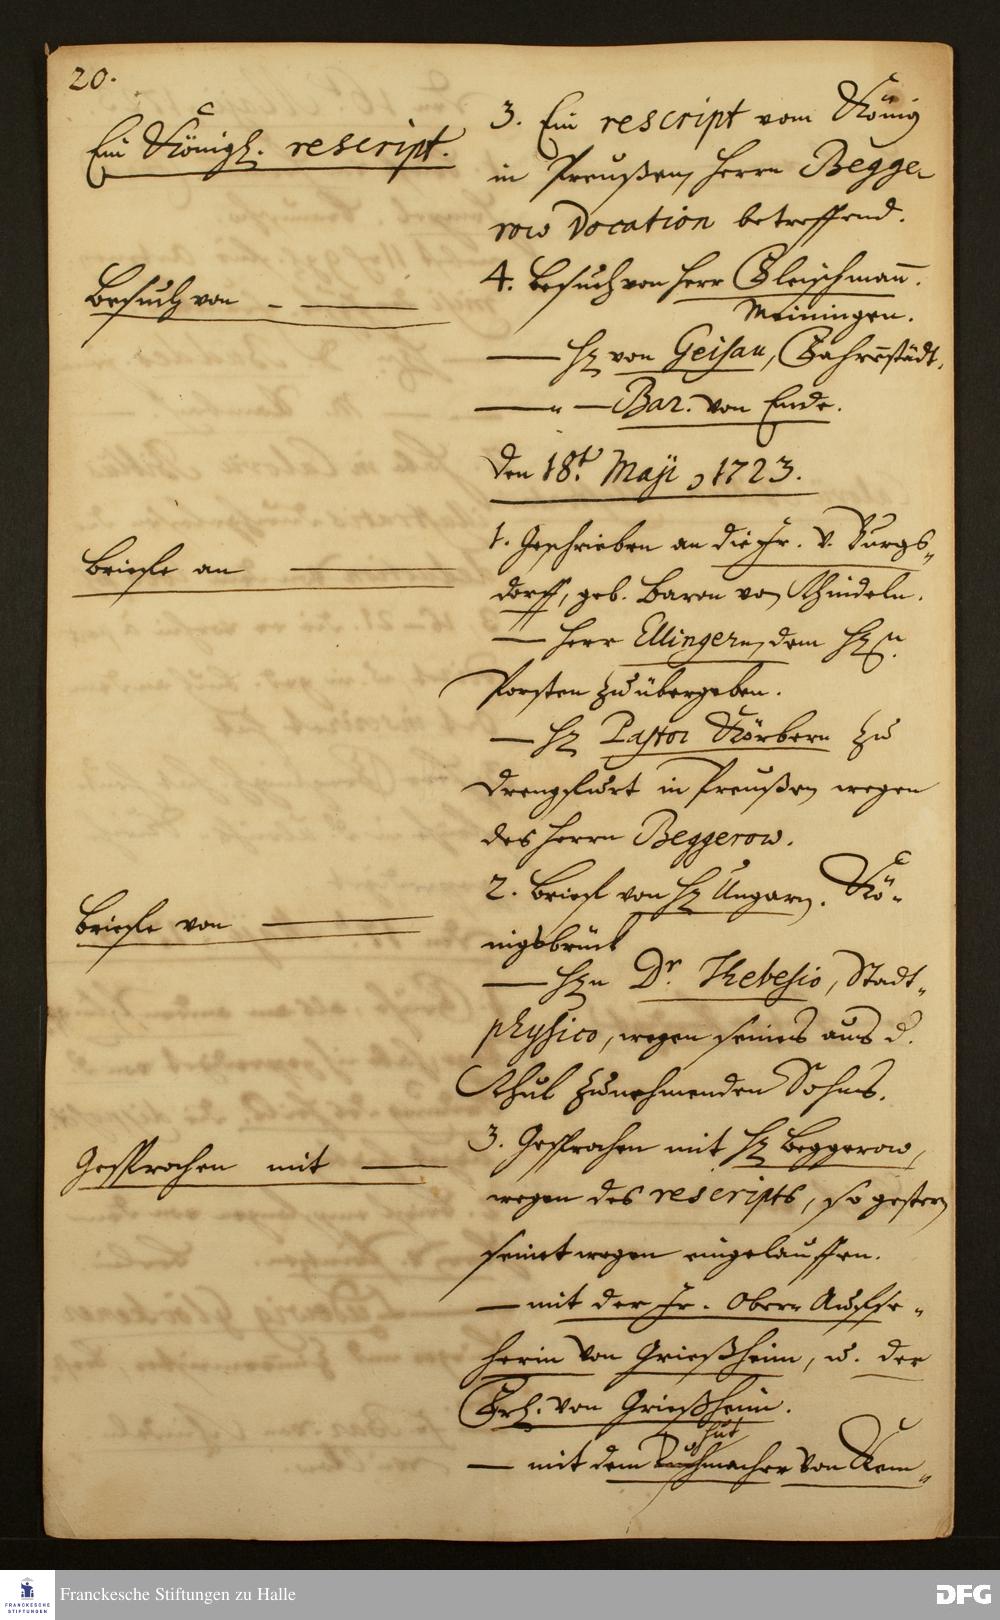 20.
Ein Königl. rescript.
3. Ein rescript vom König
in Preußen, Herrn Begge-
row Vocation betreffend.
Besuch von
4. Besuch von Herr Fleischmann.
Meiningen.
Hz von Geisau, Farrnstädt.
" Bar. von Ende.
den 18t. Maji, 1723.
Briefe an
1. Geschrieben an die Fr. v. Burgs-
dorff, geb. Baron von Schindeln.
Herr Ellingern, dem Hz n
Porsten zu übergeben.
Hz Pastor Körbern zu
Drengfurt in Preußen wegen
des Herrn Beggerow.
Briefe von
2. Brief von Hz Ungarn. Kö-
nigsbrück
Hzn Dr. Thebesio, Stadt-
physico, wegen seines aus d.
Schul zunehmenden Sohns.
Gesprochen mit
3. Gesprochen mit Hz Beggerow,
wegen des rescripts, so gestern
seinetwegen eingelauffen.
mit der Fr. Obern Auffse-
herin von Grießheim, u. der
Frl. von Grießheim.
hut
mit dem macher von Kem-
Franckesche Stiftungen zu Halle
FRANCKESCHE
STIFTUNGEN
DFG